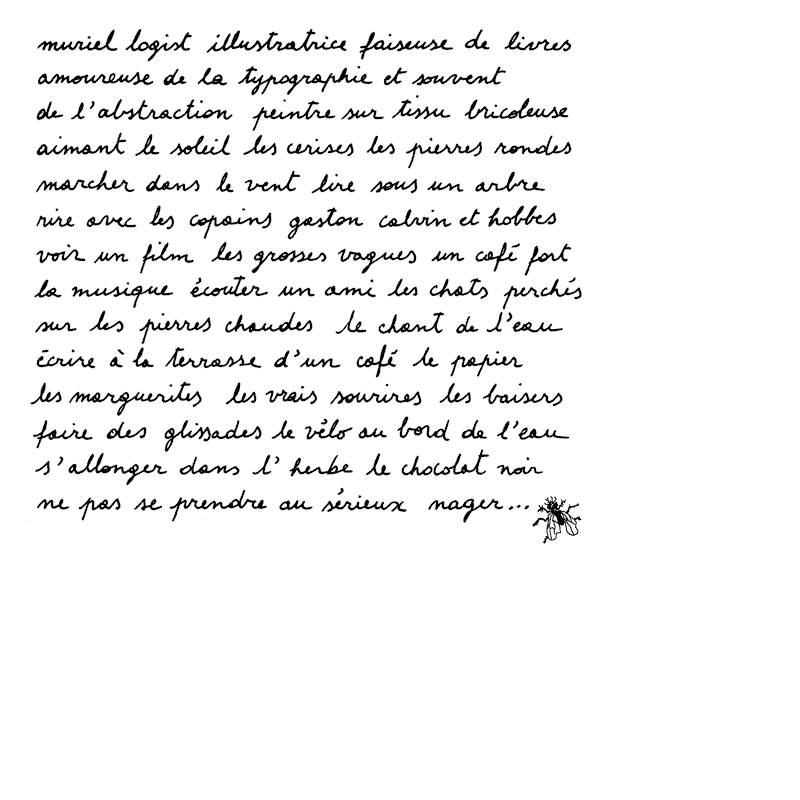 muriel logist illustratrice faiseuse de livres
amoureuse de la typographie et souvent
de l'abstraction peintre sur tissu bricoleuse
aimant le soleil les cerises les pierres rondes
marcher dans le vent lire sous un arbre
rire avec les copains gaston calvin et hobbes
voir un film les grosses vagues un café fort
la musique écouter un ami les chats perchés
sur les pierres chaudes le chant de l'eau
écrire à la terrasse d'un café le papier
les marguerites les vrais sourires les baisers
faire des glissades le vélo au bord de l'eau
s'allonger dans l'herbe le chocolat noir
ne pas se prendre au sérieux nager...